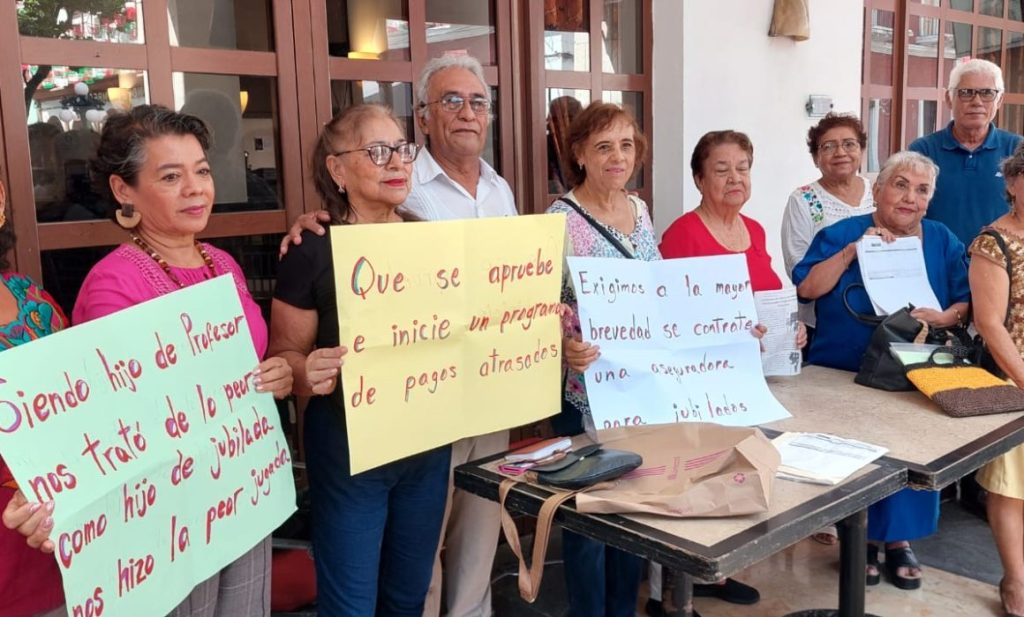 Siendo hijo de Profesor
nos trató de lo peor
como hijo de jubilada
nos hizo la peor jugada
Que se apruebe
e inicie un programa
de pagos atrasados
Exigimos a la mayor
brevedad se contrate
una aseguradora
para jubilados